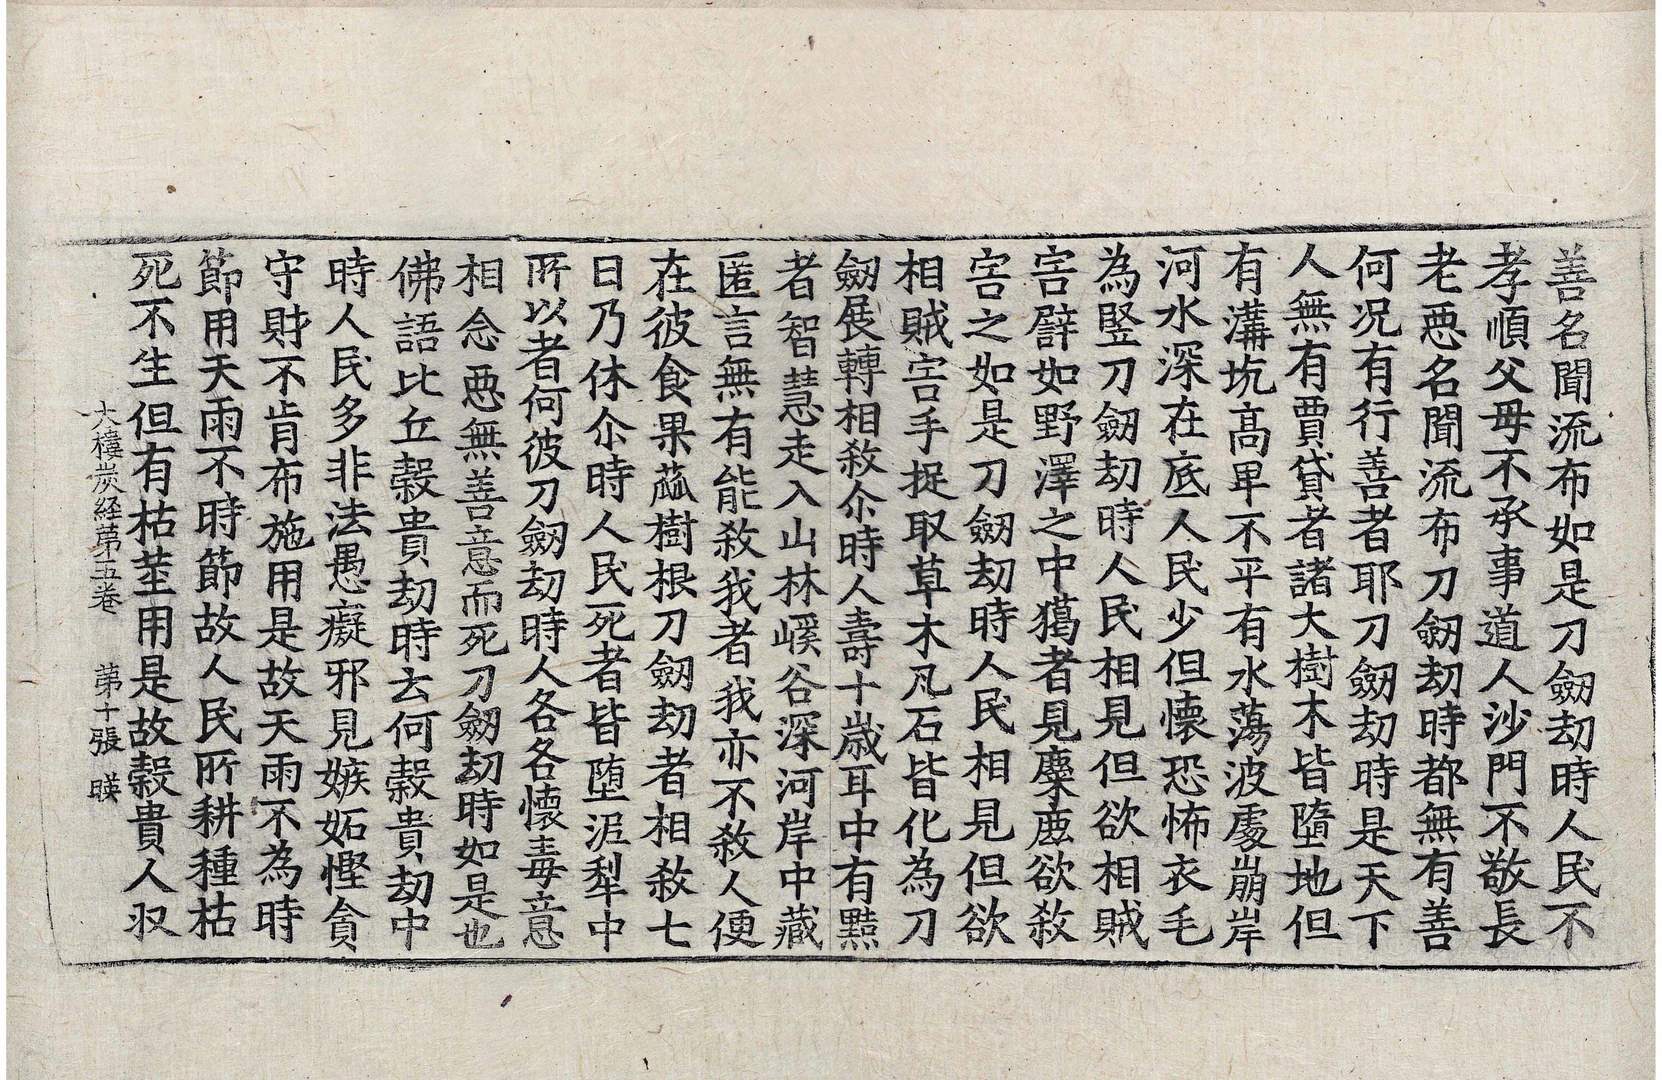 善名聞流布如是刀劒劫時人民不
孝順父母不承事道人沙門不敬長
老惡名聞流布刀劒劫時都無有善
何況有行善者耶刀劒劫時是天下
人無有賈貸者諸大樹木皆墮地但
有溝坑髙卑不平有水蕩波處崩岸
河水深在底人民少但懷恐怖衣毛
為竪刀劒劫時人民相見但欲相賊
害譬如野澤之中獦者見麋鹿欲敘
害之如是刀劒劫時人民相見但欲
相賊害手捉取草木凡石皆化為刀
劒展轉相敘尒時人壽十歲耳中有黠
者智慧走入山林嵠谷深河岸中藏
匿言無有能敘我者我亦不敘人便
在彼食果蓏樹根刀劒劫者相敘七
日乃休尒時人民死者皆堕泥犁中
所以者何彼刀劒劫時人各各懷毒意
相念惡無善意而死刀劒劫時如是也
佛語比丘榖貴劫時云何榖貴劫中
時人民多非法愚癡邪見嫉妬慳貪
守財不肯布施用是故天雨不為時
節用天雨不時節故人民所耕種枯
死不生但有枯莖用是故榖貴人収
大樓炭経苐五卷　苐十張　暎